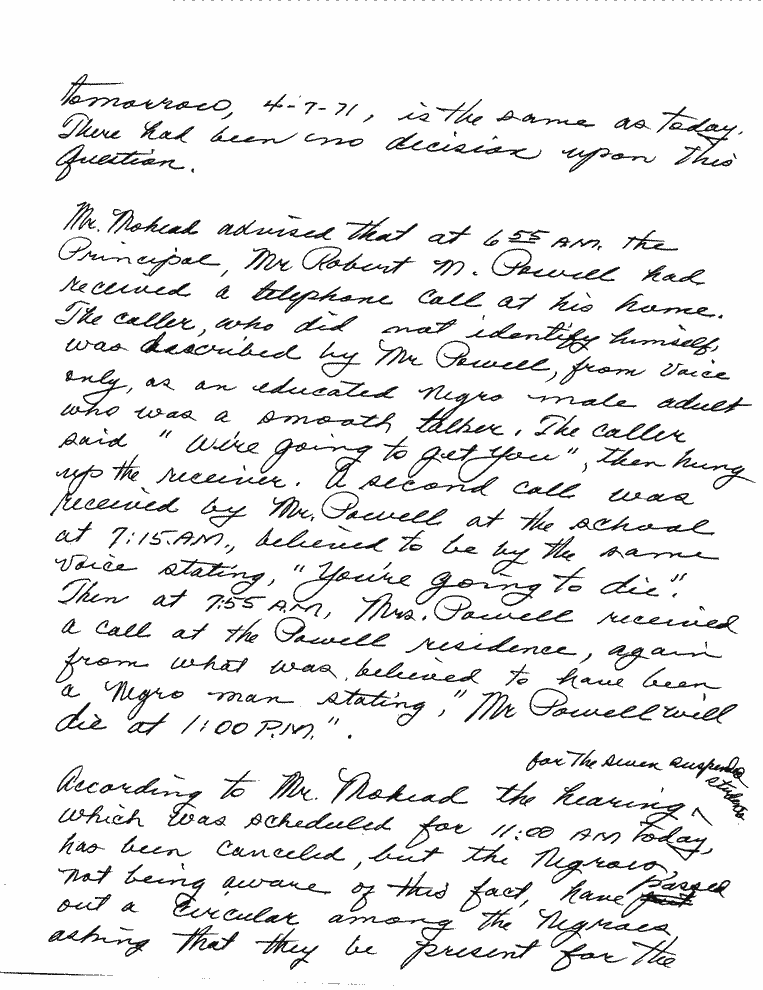 tomorrow, 4-7-71, is the same as today.
There had been no decision upon this
Question.
Mr. Mohead advised that at 6 55 A.M. the
Principal, Mr Robert M. Powell had
received a telephone call at his home.
The caller, who did not identify himself,
was described by Mr Powell, from voice
only, as an educated Negro male adult
who was a smooth talker. The caller
said "We're going to get you", then hung
up the receiver. A second call was
received by Mr. Powell at the school
at 7:15 A.M., believed to be by the same
voice stating, "You're going to die".
Then at 7:55 A.M., Mrs. Powell received
a call at the Powell residence, again
from what was believed to have been
a Negro man stating, "Mr Powell will
die at 1:00 P.M.".
for the seven suspended
students
According to Mr. Mohead the hearing
which was scheduled for 11:00 AM today,
has been canceled, but the Negroes,
passed
not being aware of this fact, have
out a circular among the Negroes
asking that they be present for the